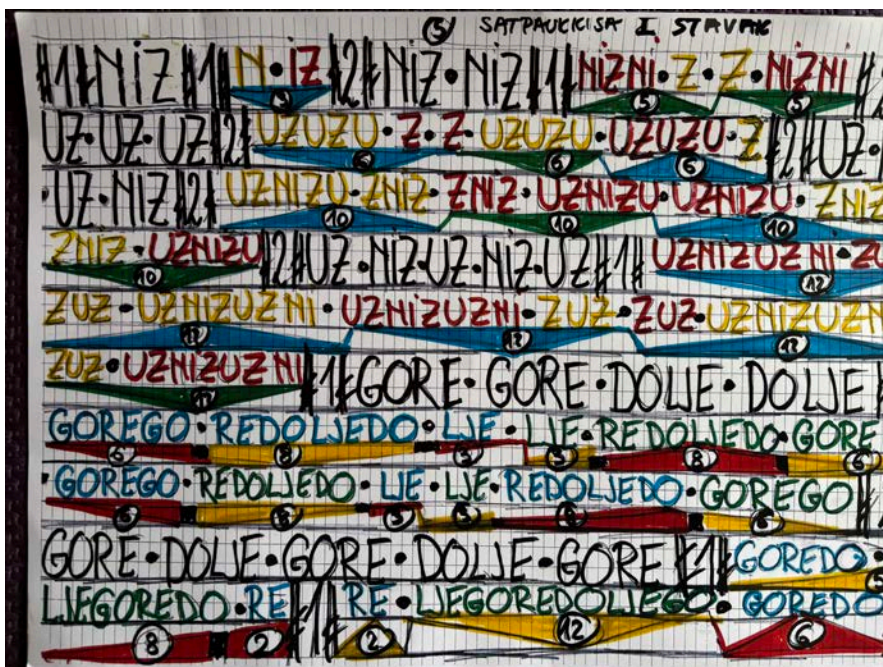 (5) SATPAUKKISA I STAVAK
#1#NIZ#1#N·IZ#2#NIZ·NIZ#1#NIZNI·Z·Z·NIZNI#
3 5 5
UZ·UZ·UZ#2#UZUZU·Z·Z·UZUZU·UZUZU·Z#2#UZ·
6 6 6
·UZ·NIZ#2#UZNIZU·ZNIZ·ZNIZ·UZNIZU·UZNIZU·ZNIZ
10 10 10
ZNIZ·UZNIZU#2#UZ·NIZ·UZ·NIZ·UZ#1#UZNIZUZNI·ZU
10 12
ZUZ·UZNIZUZNI·UZNIZUZNI·ZUZ·ZUZ·UZNIZUZN
12 12
ZUZ·UZNIZUZNI#1#GORE·GORE·DOLJE·DOLJE
GOREGO·REDOLJEDO·LJE·LJE·REDOLJEDO·GORE
6 8 3 3 8 6
·GOREGO·REDOLJEDO·LJE·LJE·REDOLJEDO·GOREGO#
6 8 3 3 8 6
GORE·DOLJE·GORE·DOLJE·GORE#1#GOREDO·
LJEGOREDO·RE#1#RE·LJEGOREDOLJEGO·GOREDO
8 2 2 12 6